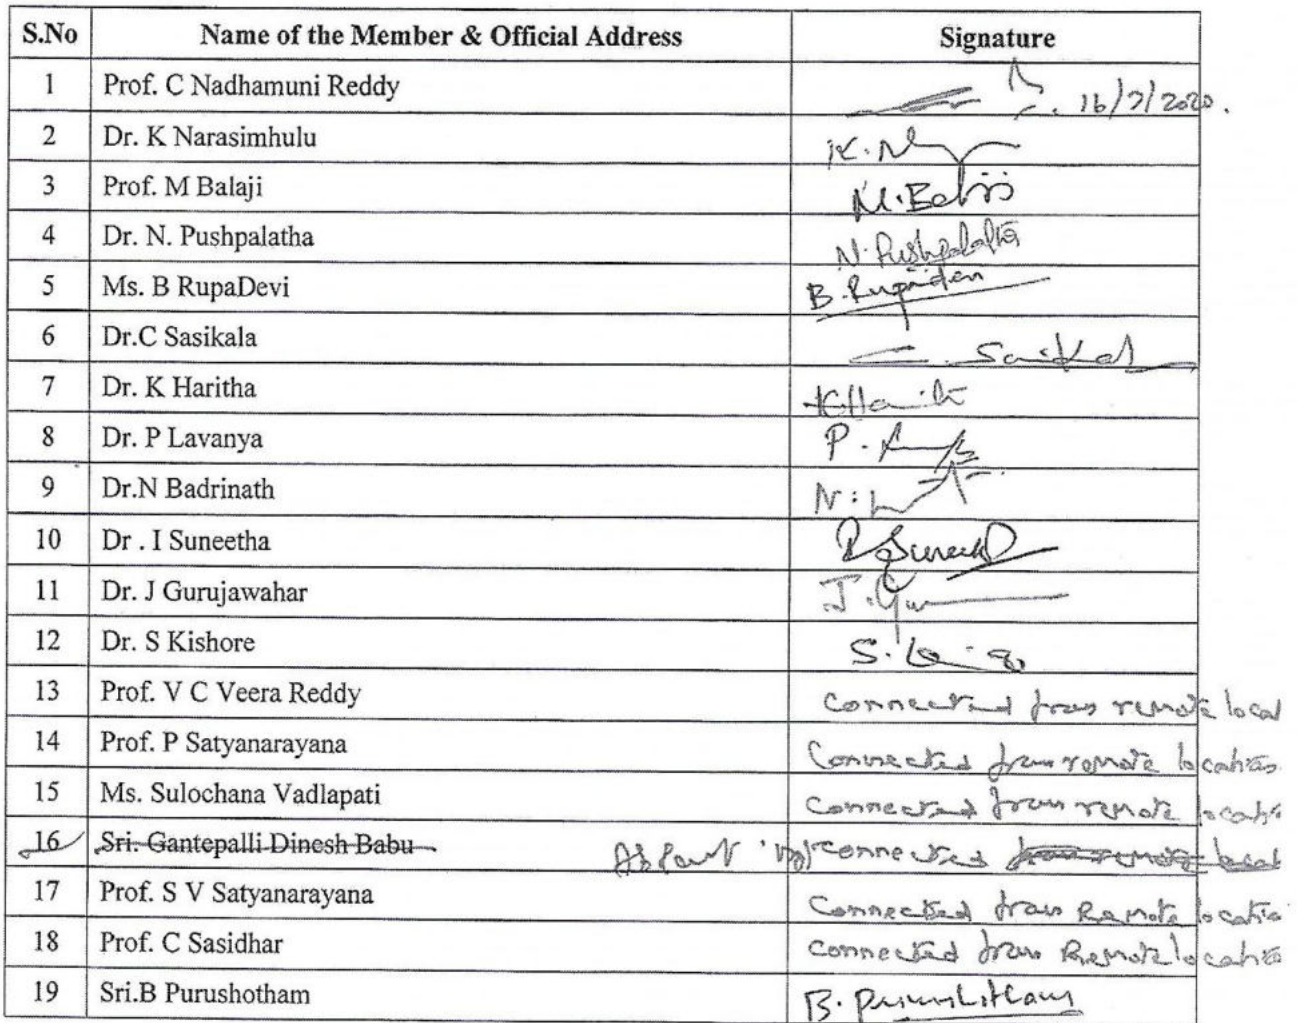 S.No Name of the Member & Official Address Signature
1 Prof. C Nadhamuni Reddy 16/7/2020.
2 Dr. K Narasimhulu K.N
3 Prof. M Balaji M.Balaji
4 Dr. N. Pushpalatha N.Pushpalatha
5 Ms. B RupaDevi B.Rupadevi
6 Dr.C Sasikala C. Sasikal
7 Dr. K Haritha KHarith
8 Dr. P Lavanya P.
9 Dr.N Badrinath N.
10 Dr . I Suneetha Suneetha
11 Dr. J Gurujawahar J.Gu
12 Dr. S Kishore S.
13 Prof. V C Veera Reddy Connected from remote local
14 Prof. P Satyanarayana Connected from remote location
15 Ms. Sulochana Vadlapati Connected from remote locatio
16 Sri. Gantepalli Dinesh Babu Absent Not connected from remote local
17 Prof. S V Satyanarayana Connected from Remote locatio
18 Prof. C Sasidhar Connected from Remote locatio
19 Sri.B Purushotham B. Purushotham